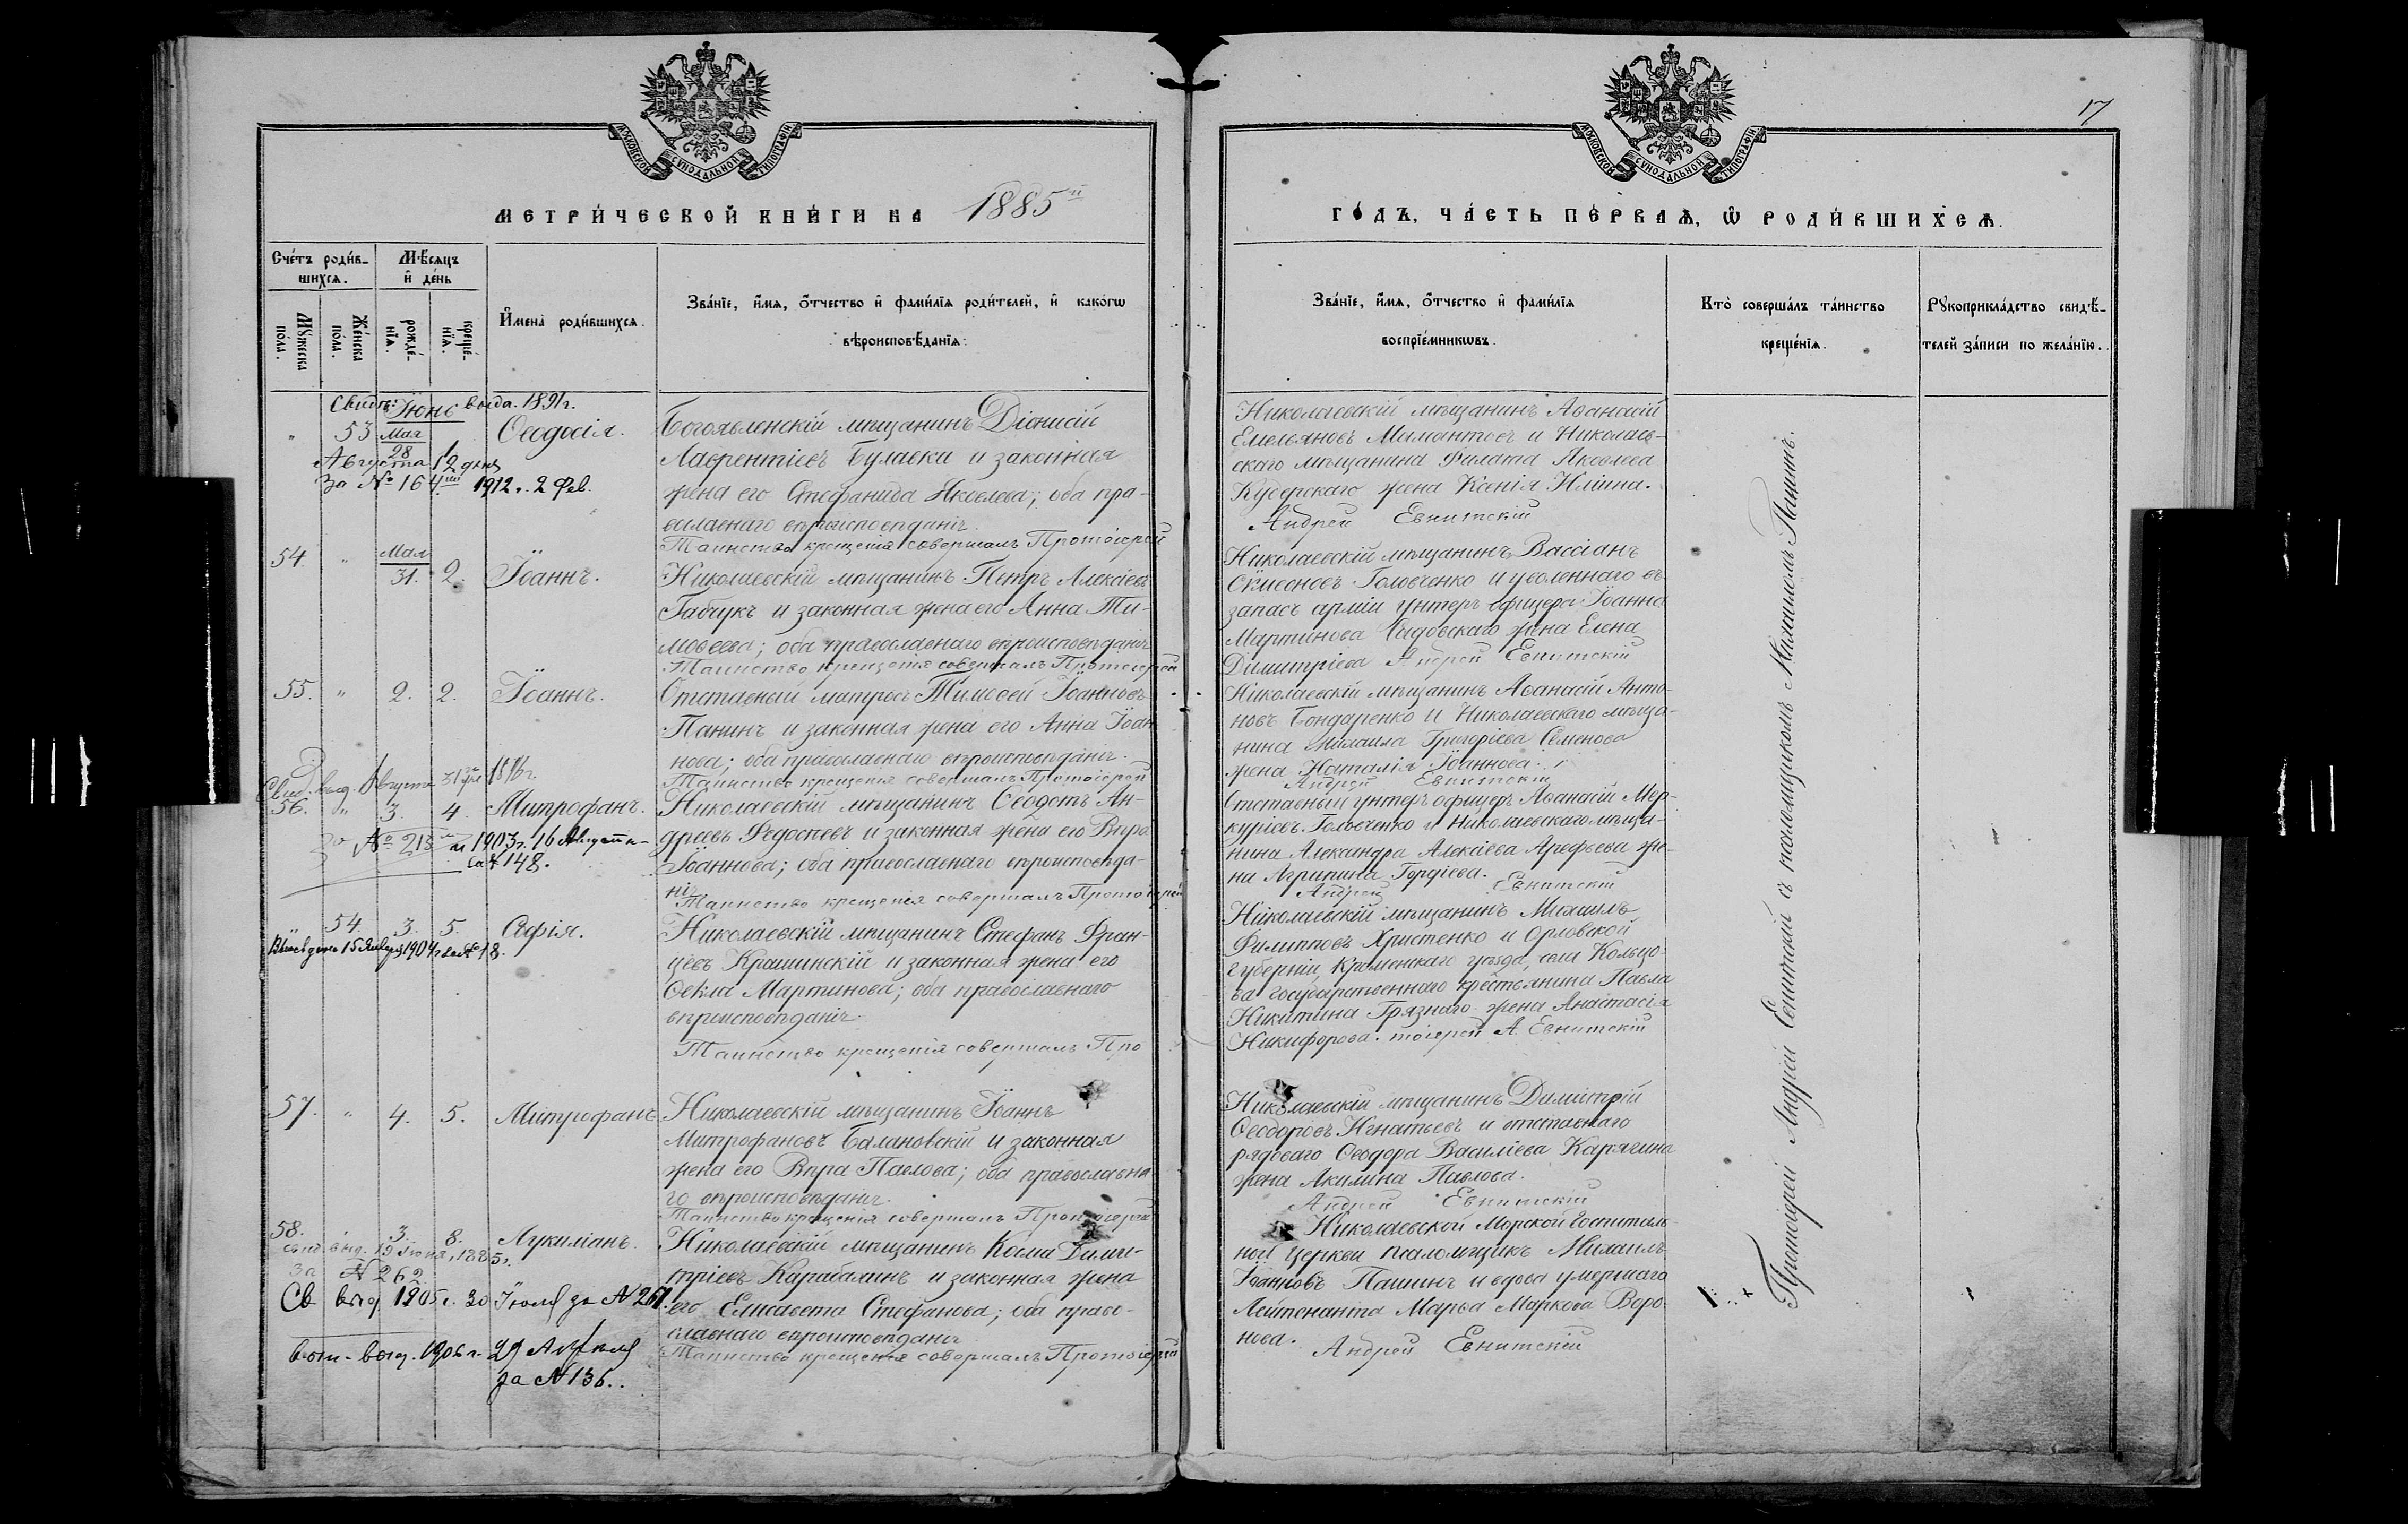 МОСКОВСКОЙ СѴНОДАЛЬНОЙ ТИПОГРАФІИ
МЕТРИ́ЧЕСКОЙ КНИ́ГИ НА 1885й
Сче́тъ роди́в-
шихсѧ.
Мѣ́сѧцъ
и҆ де́нь
Мꙋ́жеска
по́ла.
Же́нска
по́ла.
рожде́-
нїѧ.
креще́-
нїѧ.
И҆мена̀ роди́вшихсѧ.
Зва́нїе, и҆́мѧ, ѻ҆́тчество и҆ фами́лїѧ роди́телей, и҆ како́гѡ
вѣроисповѣ́данїѧ.
Свидѣ: выда. 1891 г.
Августа 12 дня
за № 164 1912 г. 2 Фев.
Іюнь
" 53 Мая 28 1. Ѳеодосія.
Богоявленскій мѣщанинъ Діонисій
Лаврентіевъ Булавки и законная
жена его Стефанида Яковлева; оба пра-
вославнаго вѣроисповѣданія.
Таинство крещенія совершалъ Протоіерей
54. " Мая 31. 2. Іоаннъ.
Николаевскій мѣщанинъ Петръ Алексіевъ
Габчукъ и законная жена его Анна Ти-
моѳеева; оба православнаго вѣроисповѣданія
Таинство крещенія совершалъ Протоіерей
55. " 2. 2. Іоаннъ.
Отставный матросъ Тимоѳей Іоанновъ
Панинъ и законная жена его Анна Іоан
нова; оба православнаго вѣроисповѣданія.
Таинство крещенія совершалъ Протоіерей
Свид. выд. Августа 31 дня 1896 г.
56. " 3. 4. Митрофанъ.
за № 215 и 1903 г. 16 Августа
за № 148.
Николаевскій мѣщанинъ Ѳеодотъ Ан-
дреевъ Федосѣевъ и законная жена его Вѣра
Іоаннова; оба православнаго вѣроисповѣда-
нія
Таинство крещенія совершалъ Протоіерей
54. 3. 5. Софія.
15 Января 1904 г. за № 18.
Николаевскій мѣщанинъ Стефанъ Фран-
цевъ Крашинскій и законная жена его
Ѳекла Мартинова; оба православнаго
вѣроисповѣданія.
Таинство крещенія совершалъ Про
57. " 4. 5. Митрофанъ
Николаевскій мѣщанинъ Іоаннъ
Митрофановъ Балановскій и законная
жена его Вѣра Павлова; оба православна
го вѣроисповѣданія.
Таинство крещенія совершалъ Протоіерей
58. " 3. 8. Лукиліанъ.
выд. 19 Іюня, 1885 г.
за № 262
Св выд 1905 г. 30 Іюля за № 261.
выд. 1906 г. 29 Апреля
за № 136.
Николаевскій мѣщанинъ Косма Дими-
тріевъ Карабалинъ и законная жена
его Елисавета Стефанова; оба право-
славнаго вѣроисповѣданія
Таинство крещенія совершалъ Протоіерей
17
МОСКОВСКОЙ СѴНОДАЛЬНОЙ ТИПОГРАФІИ
ГО́ДЪ, ЧА́СТЬ ПЕ́РВАѦ, Ѡ҆ РОДИ́ВШИХСѦ.
Зва́нїе, и҆́мѧ, ѻ҆́тчество и҆ фами́лїѧ
воспрїе́мникѡвъ.
Кто̀ соверша́лъ та́инство
креще́нїѧ.
Рꙋкоприкла́дство свидѣ́-
телей за́писи по жела́нїю.
Николаевскій мѣщанинъ Аѳанасій
Емельяновъ Мамантовъ и Николаев-
скаго мѣщанина Филата Яковлева
Кудерскаго жена Ксенія Иліина.
Андрей Евнитскій
Николаевскій мѣщанинъ Вассіанъ
Сѵмеоновъ Головченко и уволеннаго въ
запасъ арміи унтеръ офицера Іоанна
Мартинова Садовскаго жена Елена
Димитріева Андрей Евнитскій
Николаевскій мѣщанинъ Аѳанасій Анто-
новъ Бондаренко и Николаевскаго мѣща-
нина Михаила Григоріева Семенова
жена Наталія Іоаннова.
Андрей Евнитскій
Отставный унтеръ офицеръ Аѳанасій Мер-
куріевъ Головченко и Николаевскаго мѣща-
нина Александра Алексіева Арефьева же-
на Агрипина Гордіева.
Андрей Евнитскій
Николаевскій мѣщанинъ Михаилъ
Филипповъ Христенко и Орловской
губерніи, Кроменскаго уѣзда, села Кольцо-
ва государственнаго крестьянина Павла
Никитина Грязнаго жена Анастасія
Никифорова. тоіерей А. Евнитскій
Николаевскій мѣщанинъ Димитрій
Ѳеодоровъ Игнатьевъ и отставнаго
рядоваго Ѳеодора Василіева Карягина
жена Акилина Павлова.
Андрей Евнитскій
Николаевской Морской Госпиталь
ной церкви псаломщикъ Михаилъ
Іоанновъ Пашинъ и вдова умершаго
Лейтенанта Марѳа Маркова Воро-
нова.
Андрей Евнитскій
Протоіерей Андрей Евнитскій съ псаломщикомъ Михаиломъ Пашинъ.